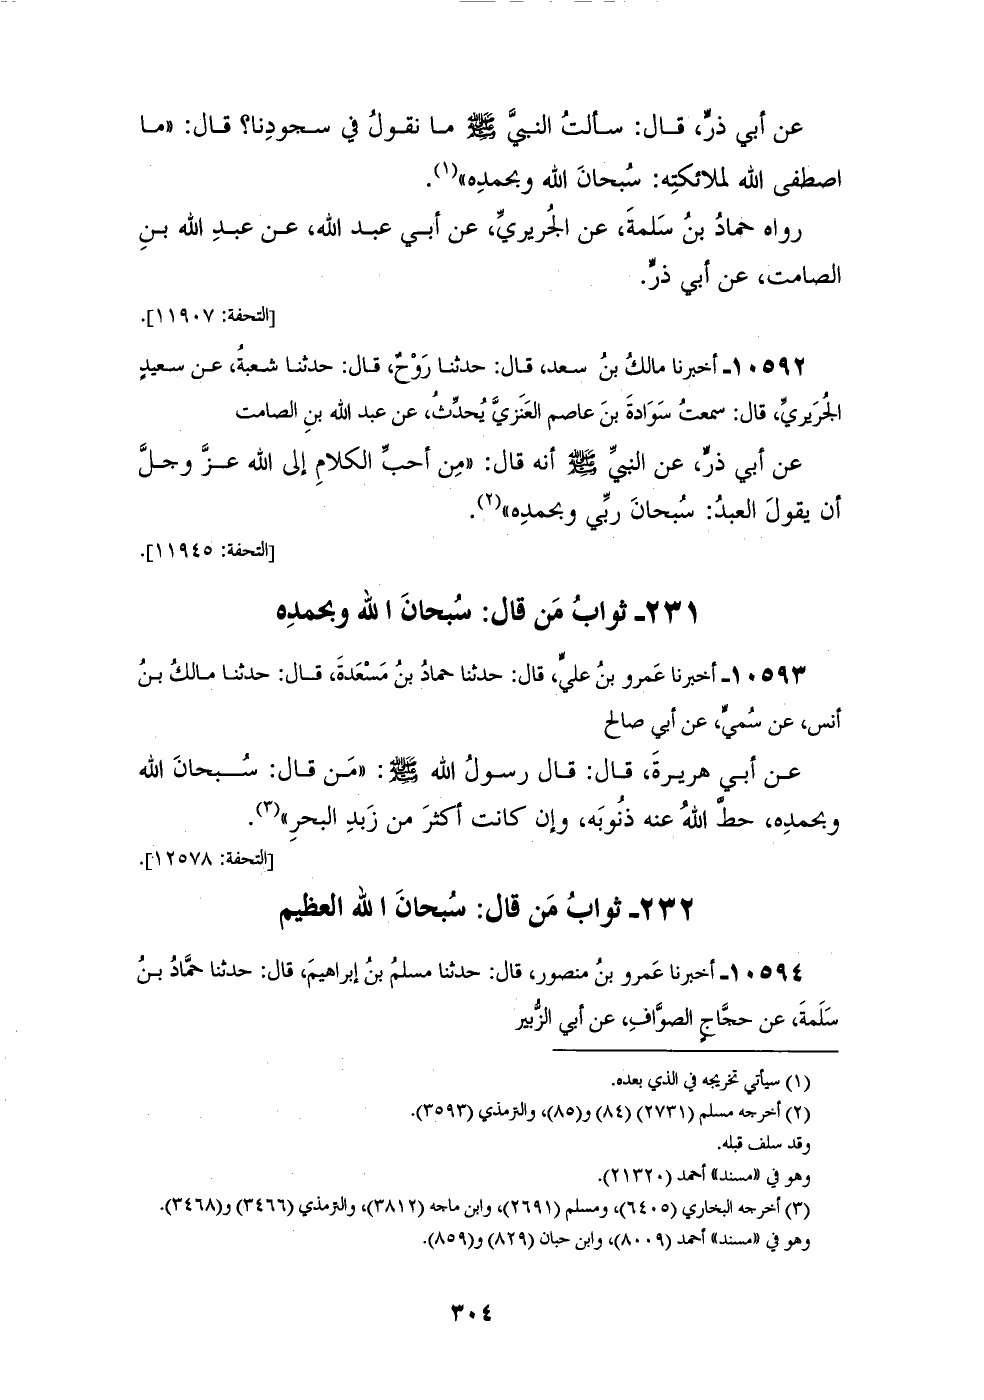 عن أبي ذرٍّ، قال: سألتُ النبيَّ ﷺ ما نقولُ في سجودِنا؟ قال: «ما
اصطفى الله لملائكتِه: سُبحانَ الله وبحمدِه»(١).
رواه حمادُ بنُ سَلمةَ، عن الجُريريِّ، عن أبي عبد الله، عن عبدِ الله بنِ
الصامت، عن أبي ذرٍّ.
[التحفة: ١١٩٠٧].
١٠٥٩٢ـ أخبرنا مالكُ بنُ سعد، قال: حدثنا رَوْحٌ، قال: حدثنا شعبةُ، عن سعيدٍ
الجُرَيريِّ، قال: سمعتُ سَوَادةَ بنَ عاصم العَنَزيَّ يُحدِّثُ، عن عبد الله بنِ الصامت
عن أبي ذرٍّ، عن النبيِّ ﷺ أنه قال: «مِن أحبِّ الكلامِ إلى الله عزَّ وجلَّ
أن يقولَ العبدُ: سُبحانَ ربِّي وبحمدِه»(٢).
[التحفة: ١١٩٤٥].
٢٣١ـ ثوابُ مَن قال: سُبحانَ الله وبحمدِه
١٠٥٩٣ـ أخبرنا عَمرو بنُ عليٍّ، قال: حدثنا حمادُ بنُ مَسْعَدةَ، قال: حدثنا مالكُ بنُ
أنس، عن سُميٍّ، عن أبي صالح
عن أبي هريرةَ، قال: قال رسولُ الله ﷺ: «مَن قال: سُبحانَ الله
وبحمدِه، حطَّ اللهُ عنه ذنُوبَه، وإن كانت أكثرَ من زَبَدِ البحرِ»(٣).
[التحفة: ١٢٥٧٨].
٢٣٢ـ ثوابُ مَن قال: سُبحانَ الله العظيم
١٠٥٩٤ـ أخبرنا عَمرو بنُ منصور، قال: حدثنا مسلمُ بنُ إبراهيمَ، قال: حدثنا حمَّادُ بنُ
سَلَمةَ، عن حجَّاجٍ الصوَّافِ، عن أبي الزُّبير
(١) سيأتي تخريجه في الذي بعده.
(٢) أخرجه مسلم (٢٧٣١) (٨٤) و(٨٥)، والترمذي (٣٥٩٣).
وقد سلف قبله.
وهو في «مسند» أحمد (٢١٣٢٠).
(٣) أخرجه البخاري (٦٤٠٥)، ومسلم (٢٦٩١)، وابن ماجه (٣٨١٢)، والترمذي (٣٤٦٦) و(٣٤٦٨).
وهو في «مسند» أحمد (٨٠٠٩)، وابن حبان (٨٢٩) و(٨٥٩).
٣٠٤